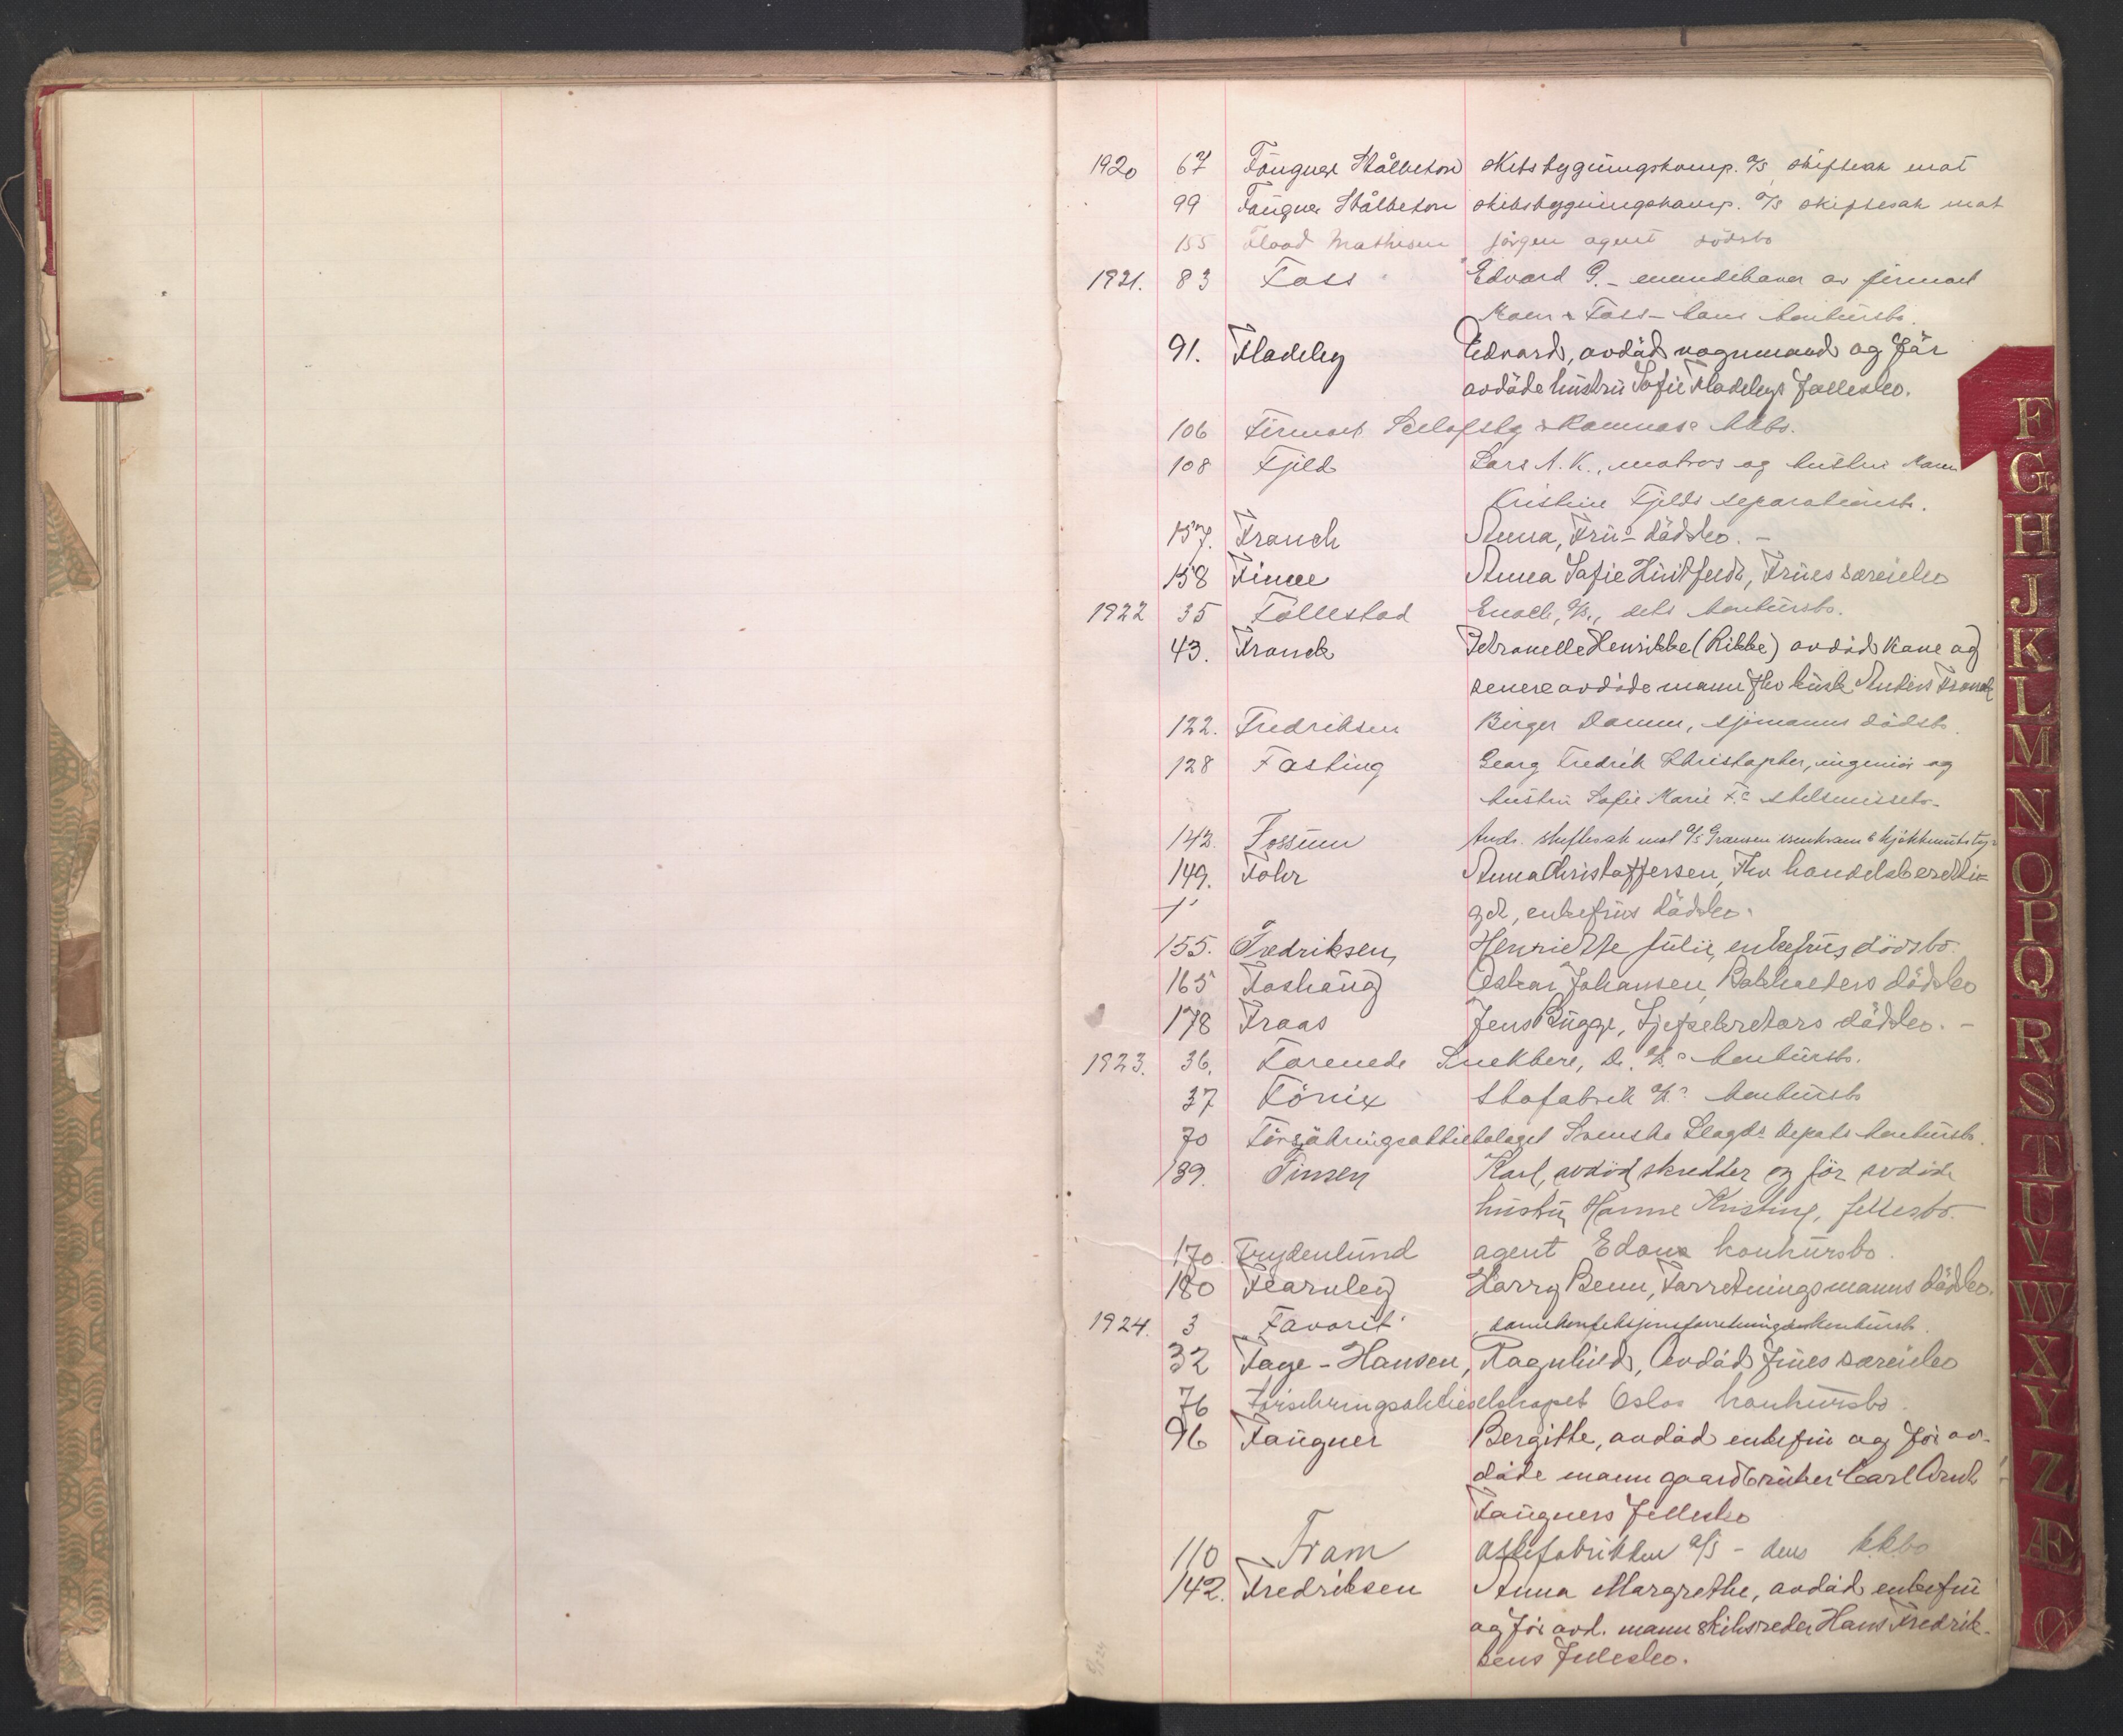 1920 67 Fougner Stålbeton skibsbygningskomp. A/S skiftesak mot
99 Fougner Stålbeton skibsbygningskomp. A/S skiftesak mot
155 Flood Mathisen Jørgen agent dödsbo
1921. 83 Foss Edvard G. - av firmaet
& Foss - hans konkursbo.
91. Fladeby Edvard, avdød vognmand og før
avdøde hustru Sofie Fladebys fællesbo.
106 Firmaet &
108 Fjeld Lars A. K., matros og hustru Karen
Kristine Fjelds separationsb.
157. Franck Anna, Frus dødsbo. -
158 Finne Anna Sofie Huitfeldt, Frues særeiebo
1922 35 Follestad Enoch, A/S, dets konkursbo.
43. Franck Petronelle Henrikke (Rikke) avdød kone og
senere avdøde mann fhv kusk Anders Franck
122. Fredriksen Birger Damm, sjømanns dødsb.
128 Fasting Georg Fredrik Christopher, ingeniør og
hustru Sofie Marie F.s skilsmissebo.
142. Fossum Andr. skiftesak mot A/S Gransen isenkram &
149. Fohr Anna Christoffersen, Fhv handelsberetti-
get, enkefrus dødsbo.
155. Fredriksen, Henriette Julie, enkefrus dödsbo.
165 Foshaug Oskar Johansen, Bokholders dødsbo
178 Fraas Jens Bugge, Sjefsekretærs dødsbo. -
1923. 36. Forenede Snekkere, De, A/S konkursbo.
37 Fönix Skofabrik A/S konkursb
70 Försäkringsaktiebolaget Svenska konkursb.
139. Finsen Karl, avdød skredder og før avdøde
hustru Hanne Kristine, fellesbo.
170. Frydenlund agent Edons konkursbo.
180 Fearnley Harry Benn, Forretningsmanns dødsbo.
1924. 3 "Favorit" damekonfeksjonsforretning konkursb.
32 Faye-Hansen, Ragnhild, Avdød frues særeiebo
76 Forsikringsaktieselskapet Oslos konkursbo.
96 Fougner Bergitte, avdød enkefru og før av-
døde mann gaardbruker Carl Arnt
Fougners fellesbo
110 Fram eskefabrikken A/S - dens kkbo
142. Fredriksen Anna Margrethe, avdød enkefru
og før avd. mann skibsreder Hans Fredrik-
sens fellesbo.
F
G
H
J
K
L
M
N
O
P
Q
R
S
T
U
V
W
X
Y
Z
Æ
Ø